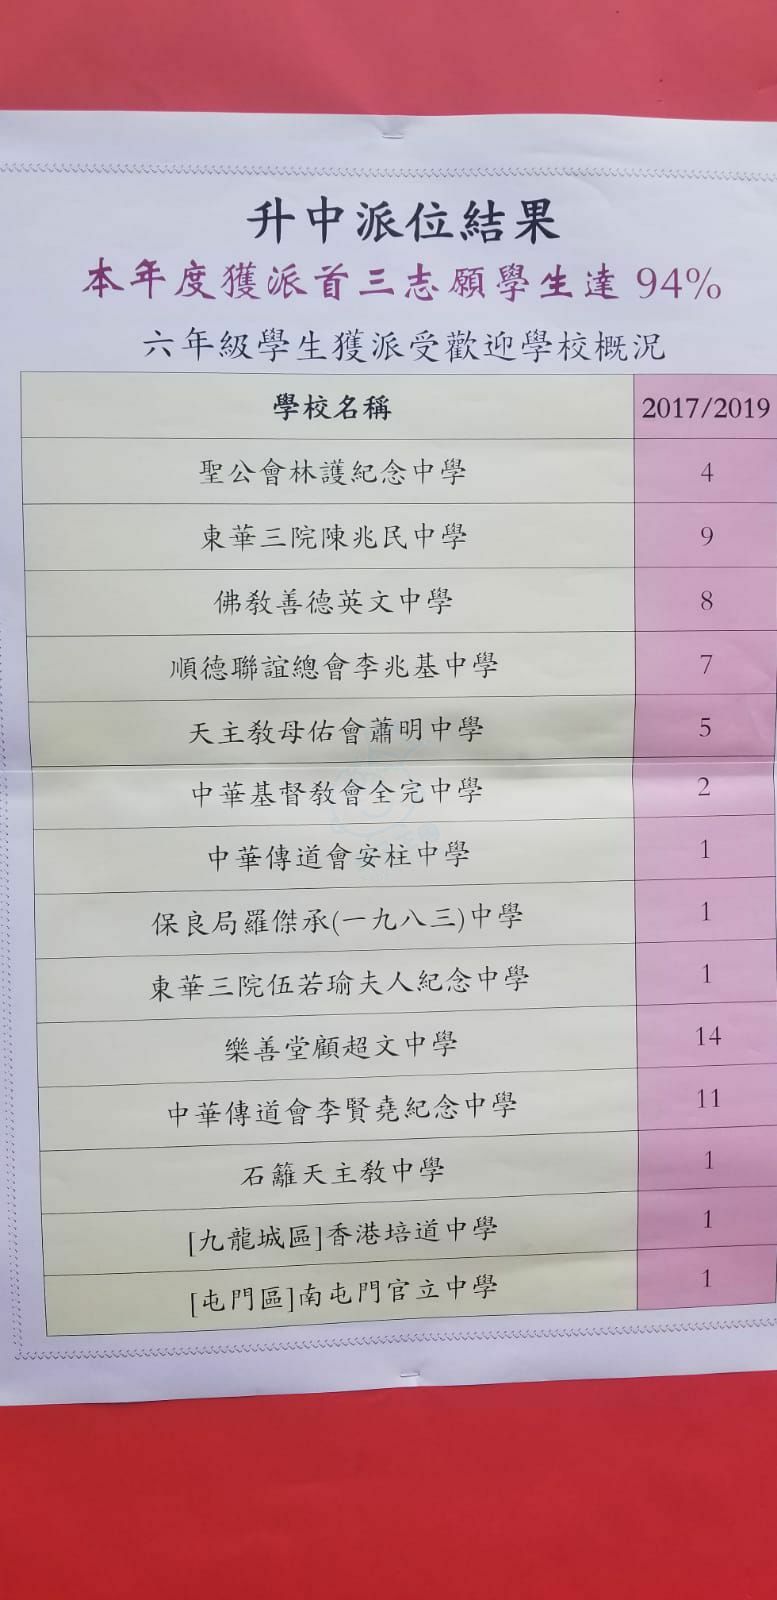 升中派位結果
本年度獲派首三志願學生達 94%
六年級學生獲派受歡迎學校概況
學校名稱 2017/2019
聖公會林護紀念中學 4
東華三院陳兆民中學 9
佛教善德英文中學 8
順德聯誼總會李兆基中學 7
天主教母佑會蕭明中學 5
中華基督教會全完中學 2
中華傳道會安柱中學 1
保良局羅傑承(一九八三)中學 1
東華三院伍若瑜夫人紀念中學 1
樂善堂顧超文中學 14
中華傳道會李賢堯紀念中學 11
石籬天主教中學 1
[九龍城區]香港培道中學 1
[屯門區]南屯門官立中學 1